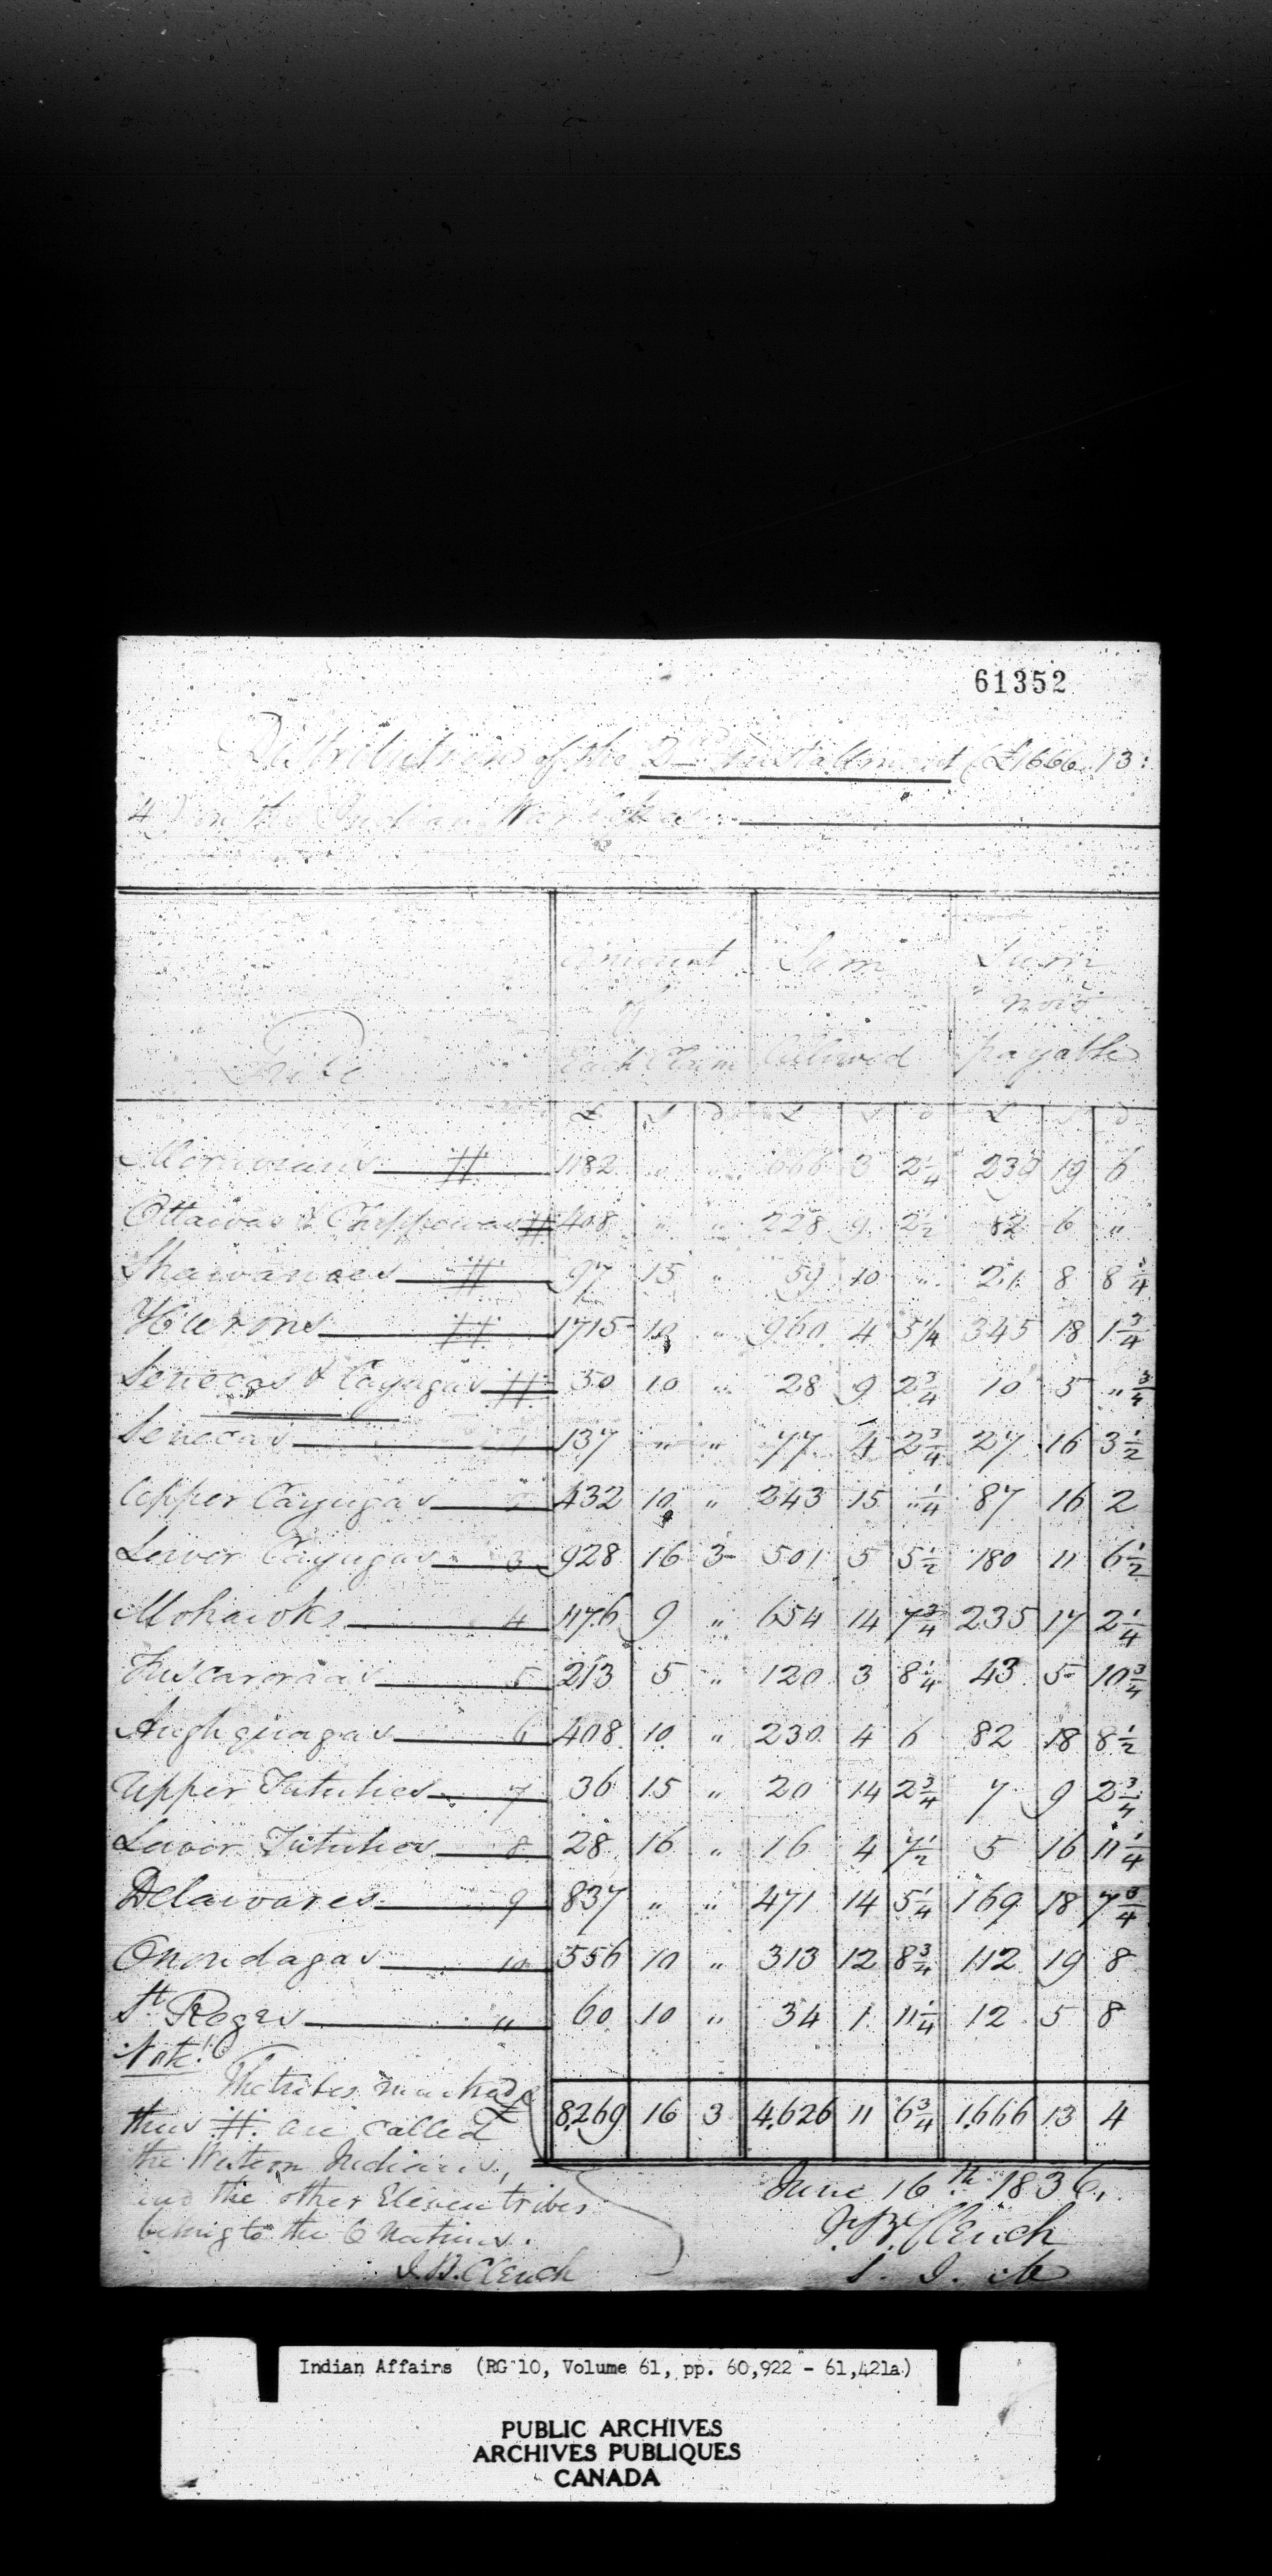 61352
Distribution of the 2nd Installment (£1666.13:
4) on the Indian War Losses
Tribe Amount of Each Claim Sum Allowed Sum now payable
£ S d £ S d £ S d
Moravians # 1182 " " 666 3 2¼ 239 19 6
Ottawas & Chippewas # 408 " " 228 9 2½ 82 6 "
Shawanoes # 97 15 " 59 10 " 21 8 8¼
Hurons # 1715 10 " 960 4 5¼ 345 18 1¾
Senecas & Cayugas # 50 10 " 28 9 2¾ 10 5 " ¾
Senecas 1 137 " " 77 4 2¾ 27 16 3½
Upper Cayugas 2 432 10 " 243 15 " ¼ 87 16 2
Lower Cayugas 3 928 16 3 501 5 5½ 180 11 6½
Mohawks 4 1176 9 " 654 14 7¾ 235 17 2¼
Tuscaroras 5 213 5 " 120 3 8¼ 43 5 10¾
Aughquagas 6 408 10 " 230 4 6 82 18 8½
Upper Tutulies 7 36 15 " 20 14 2¾ 7 9 2¾
Lower Tutulies 8 28 16 " 16 4 7½ 5 16 11¼
Delawares 9 837 " " 471 14 5¼ 169 18 7¾
Onondagas 10 556 10 " 313 12 8¾ 112 19 8
St Reges " 60 10 " 34 1 11¼ 12 5 8
£ 8269 16 3 4,626 11 6¾ 1,666 13 4
Note!
The tribes marked
thus #. are called
the Western Indians,
and the other Eleven tribes
belong to the 6 Nations.
J.B. Clench
June 16th 1836,
J.B. Clench
S. I. A
Indian Affairs (RG 10, Volume 61, pp. 60,922 - 61,421a)
PUBLIC ARCHIVES
ARCHIVES PUBLIQUES
CANADA